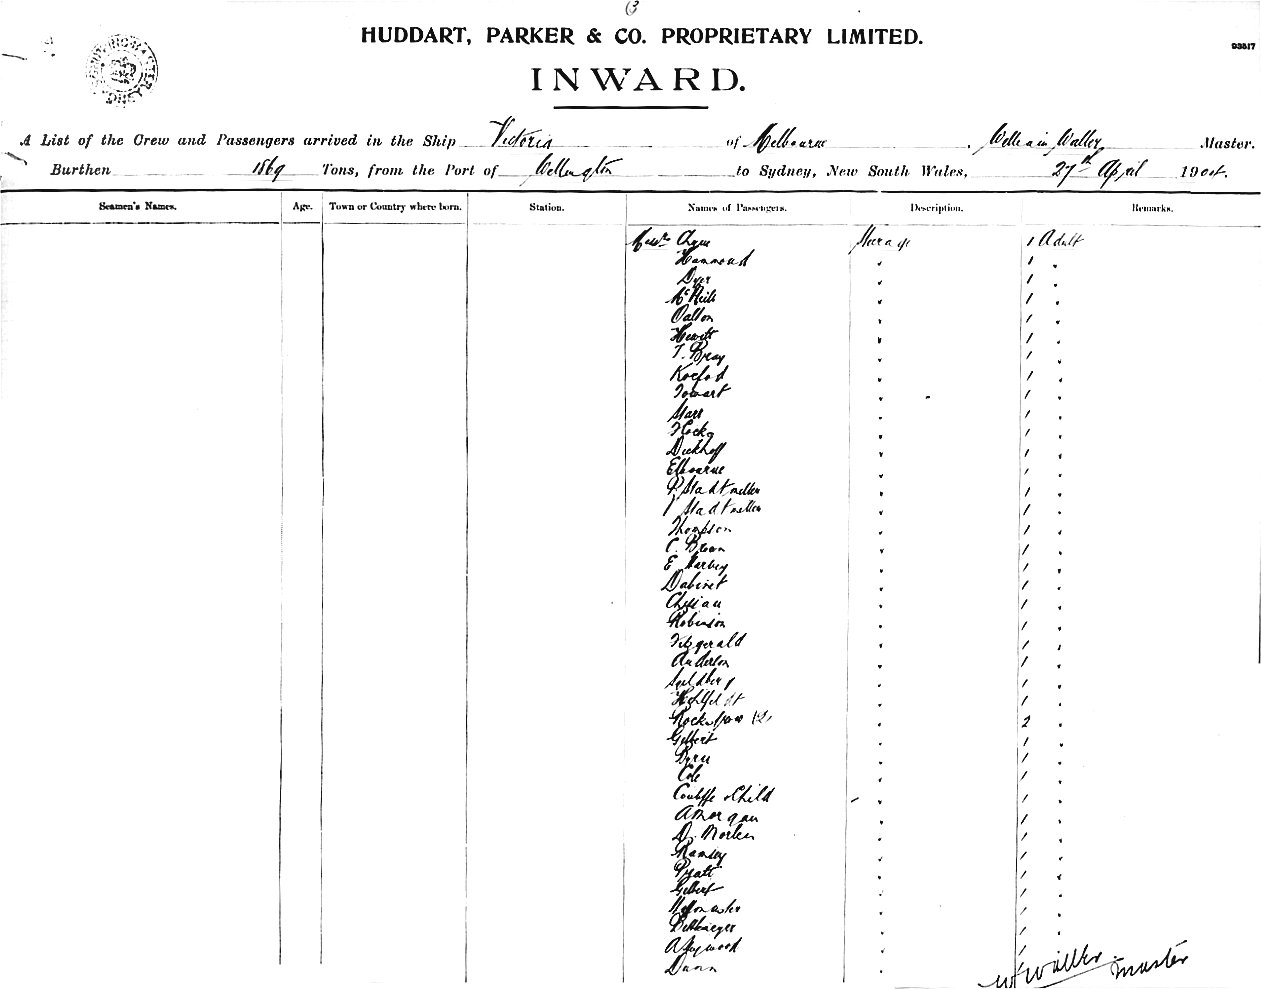 HUDDART, PARKER & CO. PROPRIETARY LIMITED.
93817
INWARD.
A List of the Crew and Passengers arrived in the Ship Victoria of Melbourne, William Waller Master.
Burthen 1869 Tons, from the Port of Wellington to Sydney, New South Wales, 27th April 1904.
Seamen's Names. Age. Town or Country where born. Station. Names of Passengers. Description. Remarks.
Messrs Steerage 1 Adult
Hammond " 1 "
Dyer " 1 "
McNeill " 1 "
Dalton " 1 "
Hewitt " 1 "
T. Bray " 1 "
Koefod " 1 "
Towart " 1 "
Starr " 1 "
" 1 "
Dickhoff " 1 "
Elbourne " 1 "
P. Stadtmiller " 1 "
Stadtmiller " 1 "
Thompson " 1 "
C. Brown " 1 "
E " 1 "
Dabinet " 1 "
" 1 "
Robinson " 1 "
Fitzgerald " 1 "
Anderson " 1 "
" 1 "
" 1 "
(2) " 2 "
Gilbert " 1 "
Byrne " 1 "
Cole " 1 "
& Child " 1 "
A Morgan " 1 "
D. " 1 "
Ramsey " 1 "
Pyatt " 1 "
Gilbert " 1 "
" 1 "
" 1 "
A " 1 "
Dunn "
W Waller Master